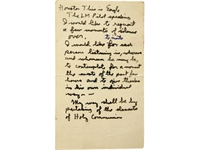 Houston This is Eagle
The LM Pilot speaking
I would like to request
a few moments of silence
over. to invite
I would like for each
person listening in, wherever
and whomever he may be,
to contemplate for a moment
the events of the past few
hours and to give thanks
in his own individual
way —
My way shall be by
partaking of the elements
of Holy Communion